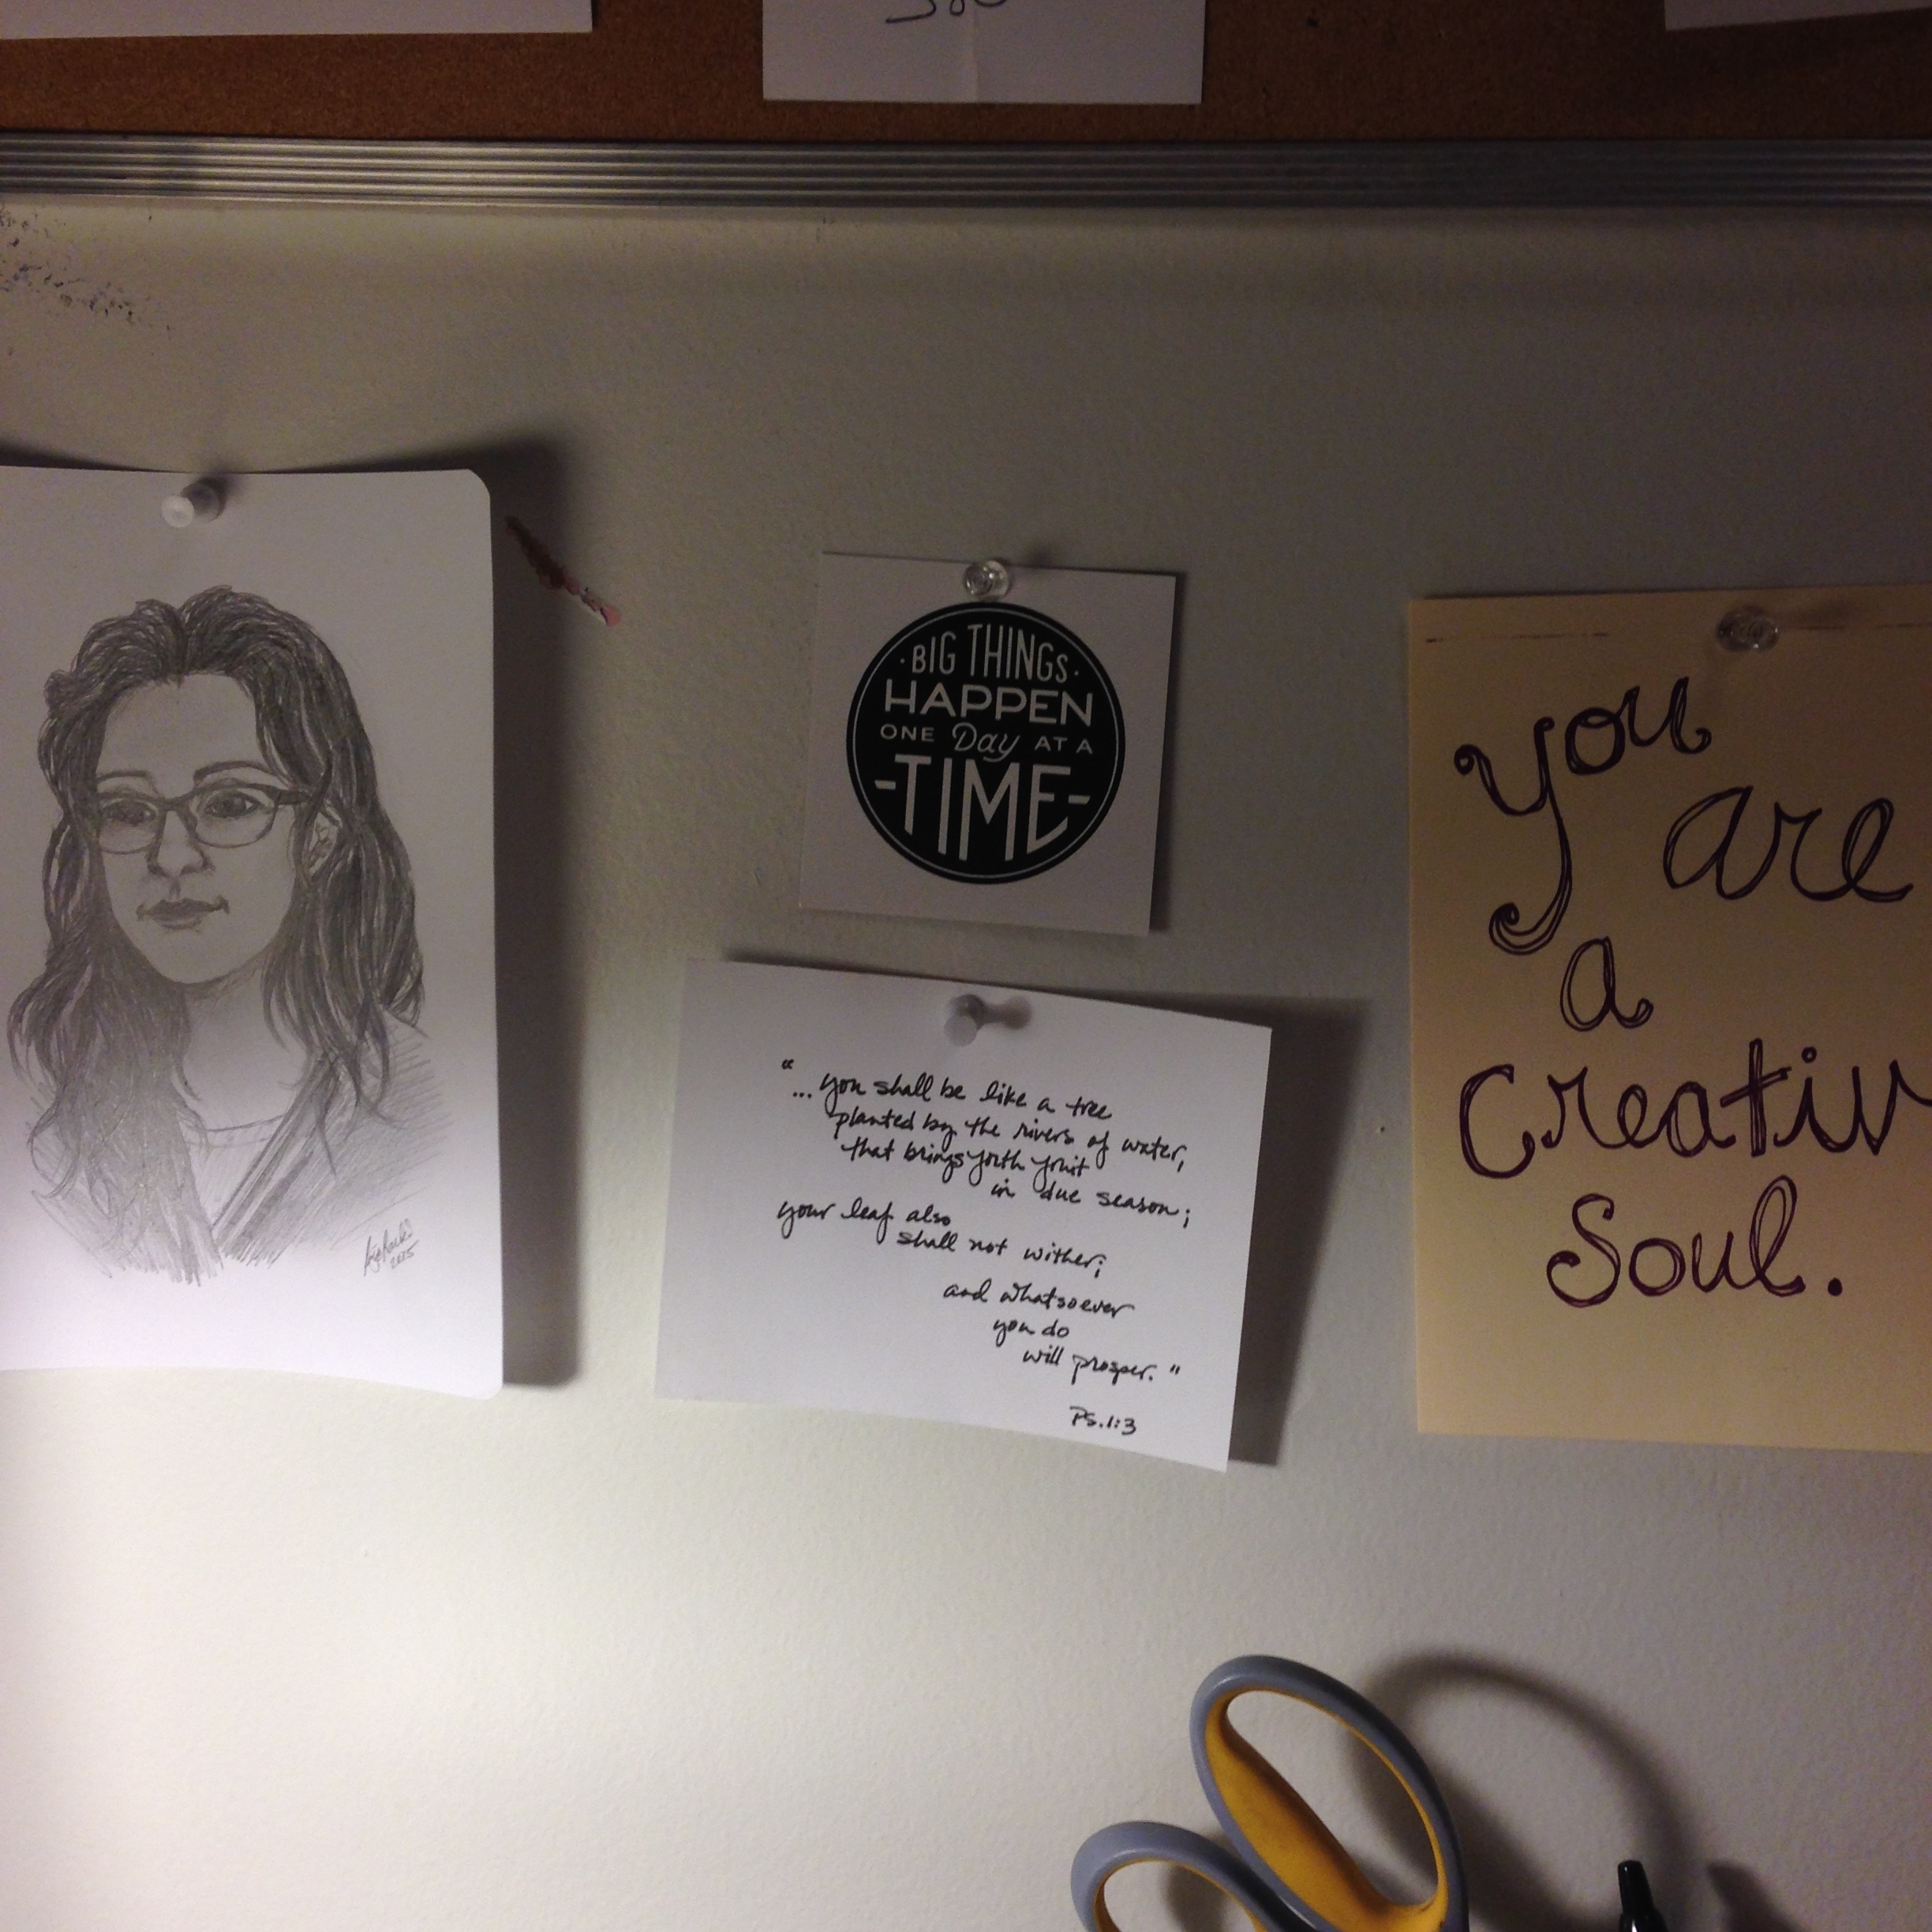 · BIG THINGS ·
HAPPEN
ONE Day AT A
-TIME-
"... you shall be like a tree
planted by the rivers of water,
that brings forth fruit
in due season;
your leaf also
shall not wither;
and whatsoever
you do
will prosper."
Ps. 1:3
you
are
a
Creativ
Soul.
2015